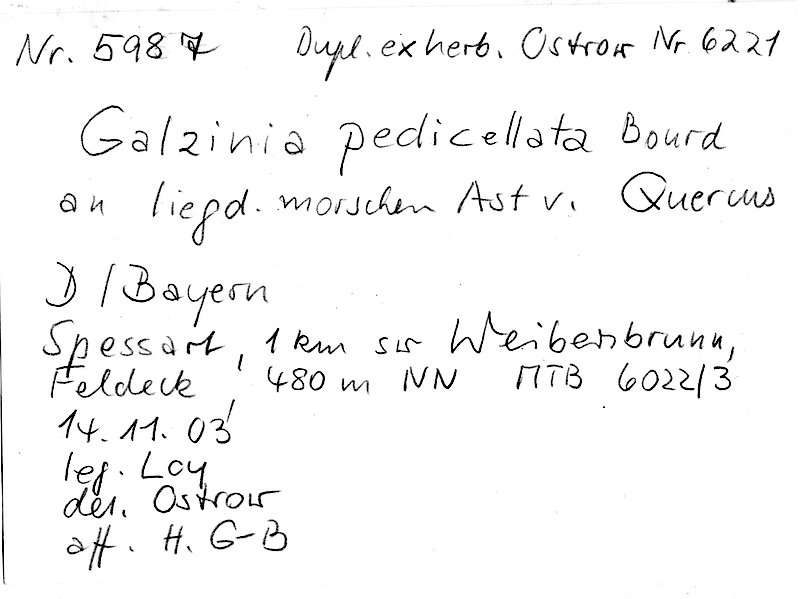 Nr. 5987 Dupl. ex herb. Ostrow Nr 6221
Galzinia pedicellata Bourd
an liegd. morschen Ast v. Quercus
D / Bayern
Spessart, 1 km sw Weibersbrunn,
Feldeck, 480 m NN MTB 6022/3
14.11.03
leg. Loy
det. Ostrow
aff. H. G-B